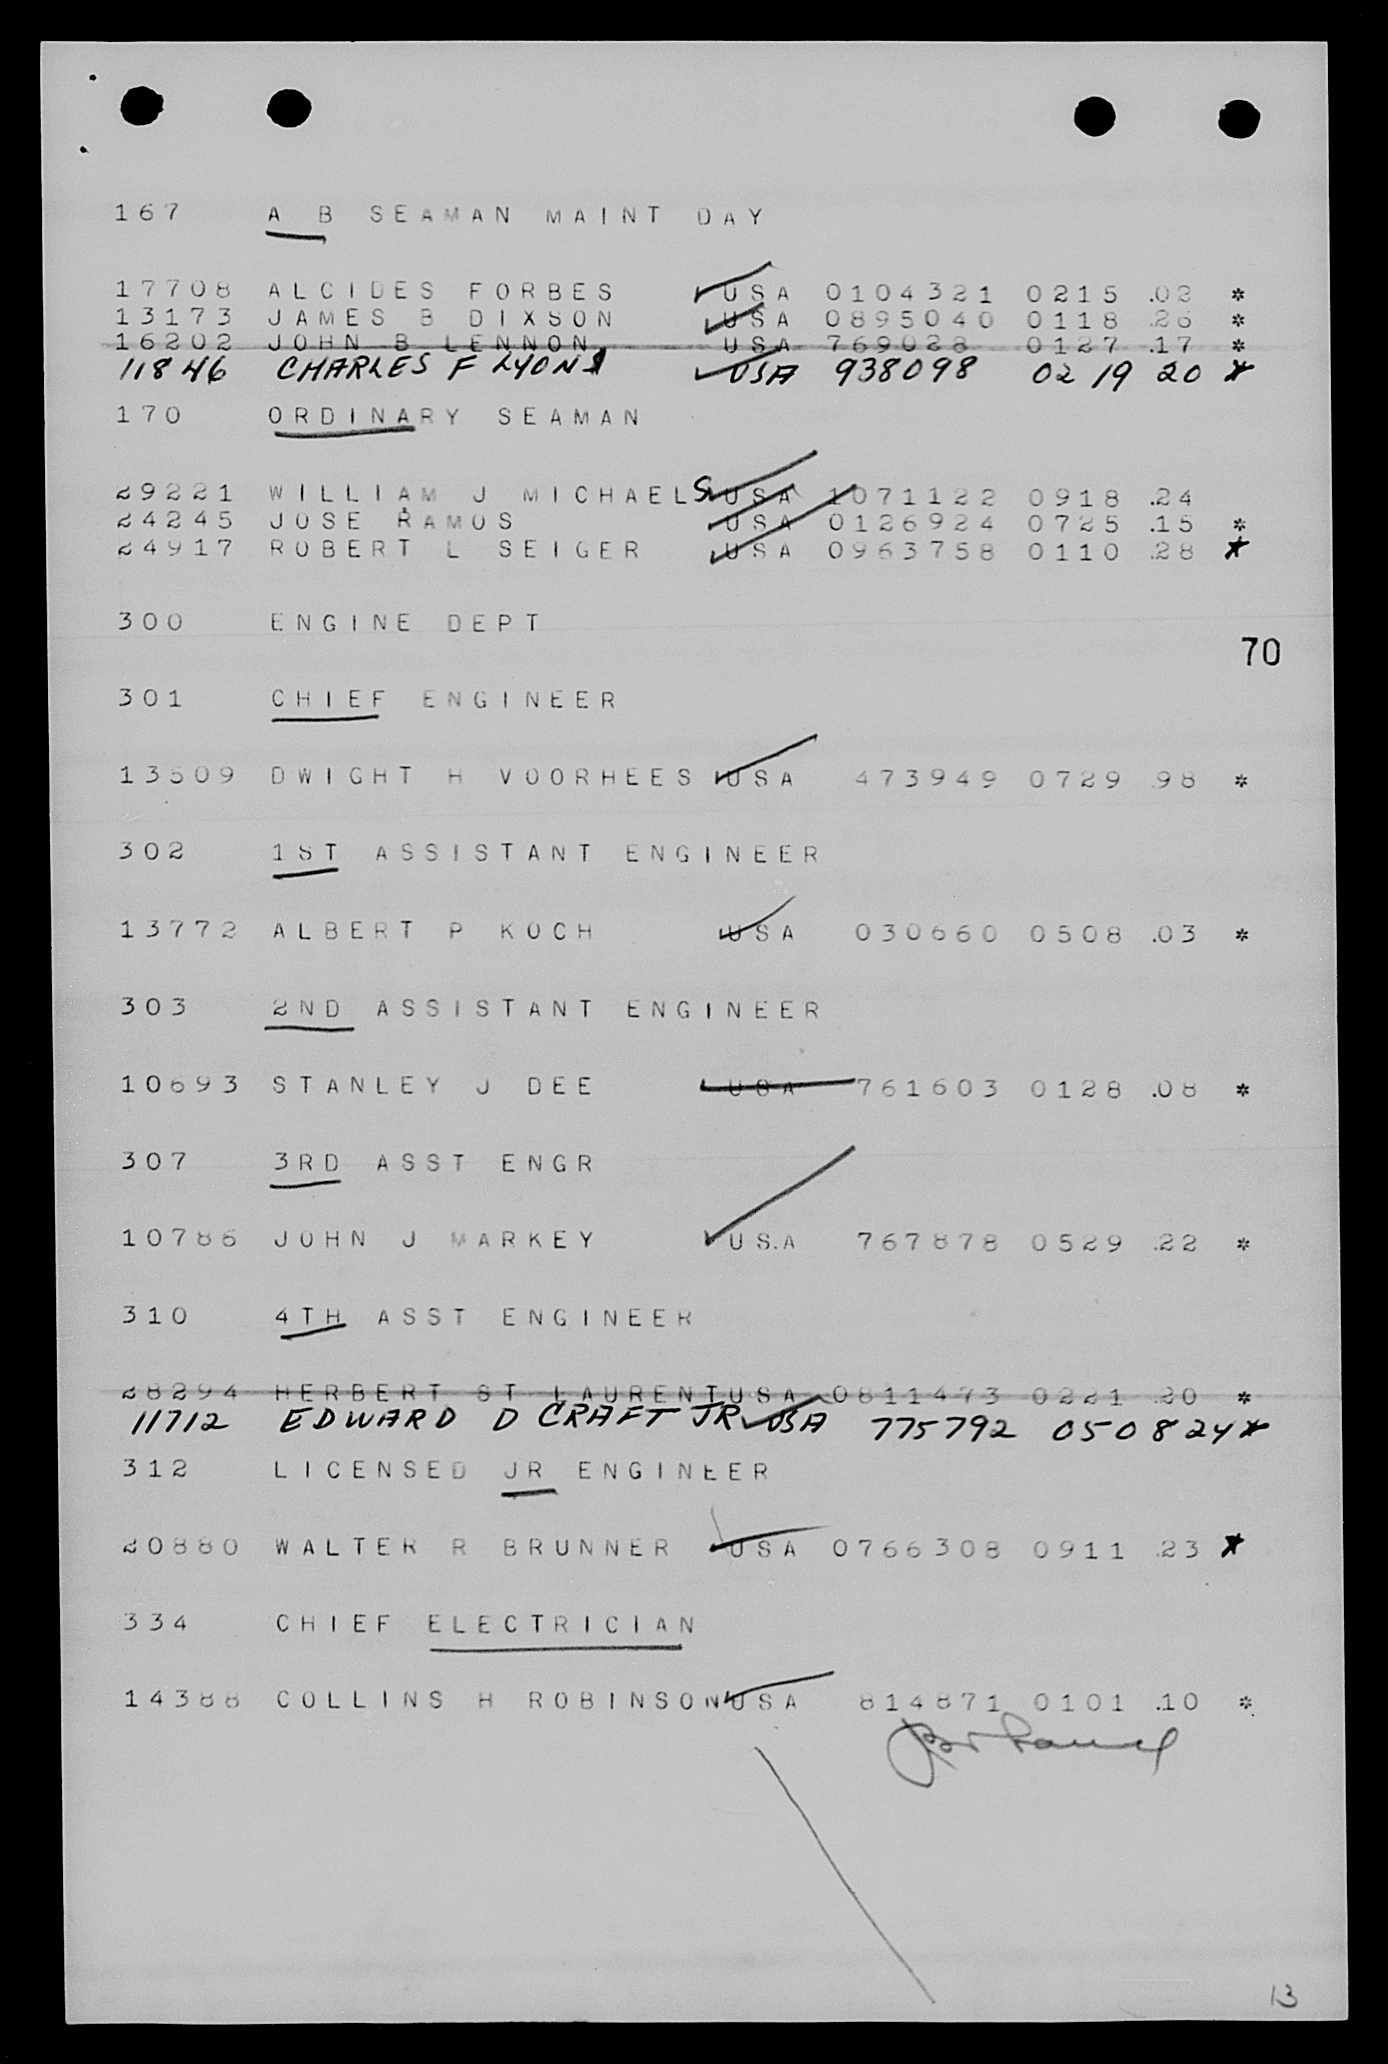 167 A B SEAMAN MAINT DAY
17708 ALCIDES FORBES USA 0104321 0215 .02 *
13173 JAMES B DIXSON USA 0895040 0118 .26 *
16202 JOHN B LENNON USA 769028 0127 .17 *
11846 CHARLES F LYONS USA 938098 02 19 20 *
170 ORDINARY SEAMAN
29221 WILLIAM J MICHAELS USA 1071122 0918 .24
24245 JOSE RAMOS USA 0126924 0725 .15 *
24917 ROBERT L SEIGER USA 0963758 0110 .28 *
300 ENGINE DEPT
70
301 CHIEF ENGINEER
13509 DWIGHT H VOORHEES USA 473949 0729 98 *
302 1ST ASSISTANT ENGINEER
13772 ALBERT P KOCH USA 030660 0508 .03 *
303 2ND ASSISTANT ENGINEER
10693 STANLEY J DEE USA 761603 0128 .08 *
307 3RD ASST ENGR
10786 JOHN J MARKEY US.A 767878 0529 .22 *
310 4TH ASST ENGINEER
28294 HERBERT ST LAURENT USA 0811473 0221 20 *
11712 EDWARD D CRAFT JR USA 775792 050824 *
312 LICENSED JR ENGINEER
20880 WALTER R BRUNNER USA 0766308 0911 .23 *
334 CHIEF ELECTRICIAN
14388 COLLINS H ROBINSON USA 814871 0101 .10 *
13